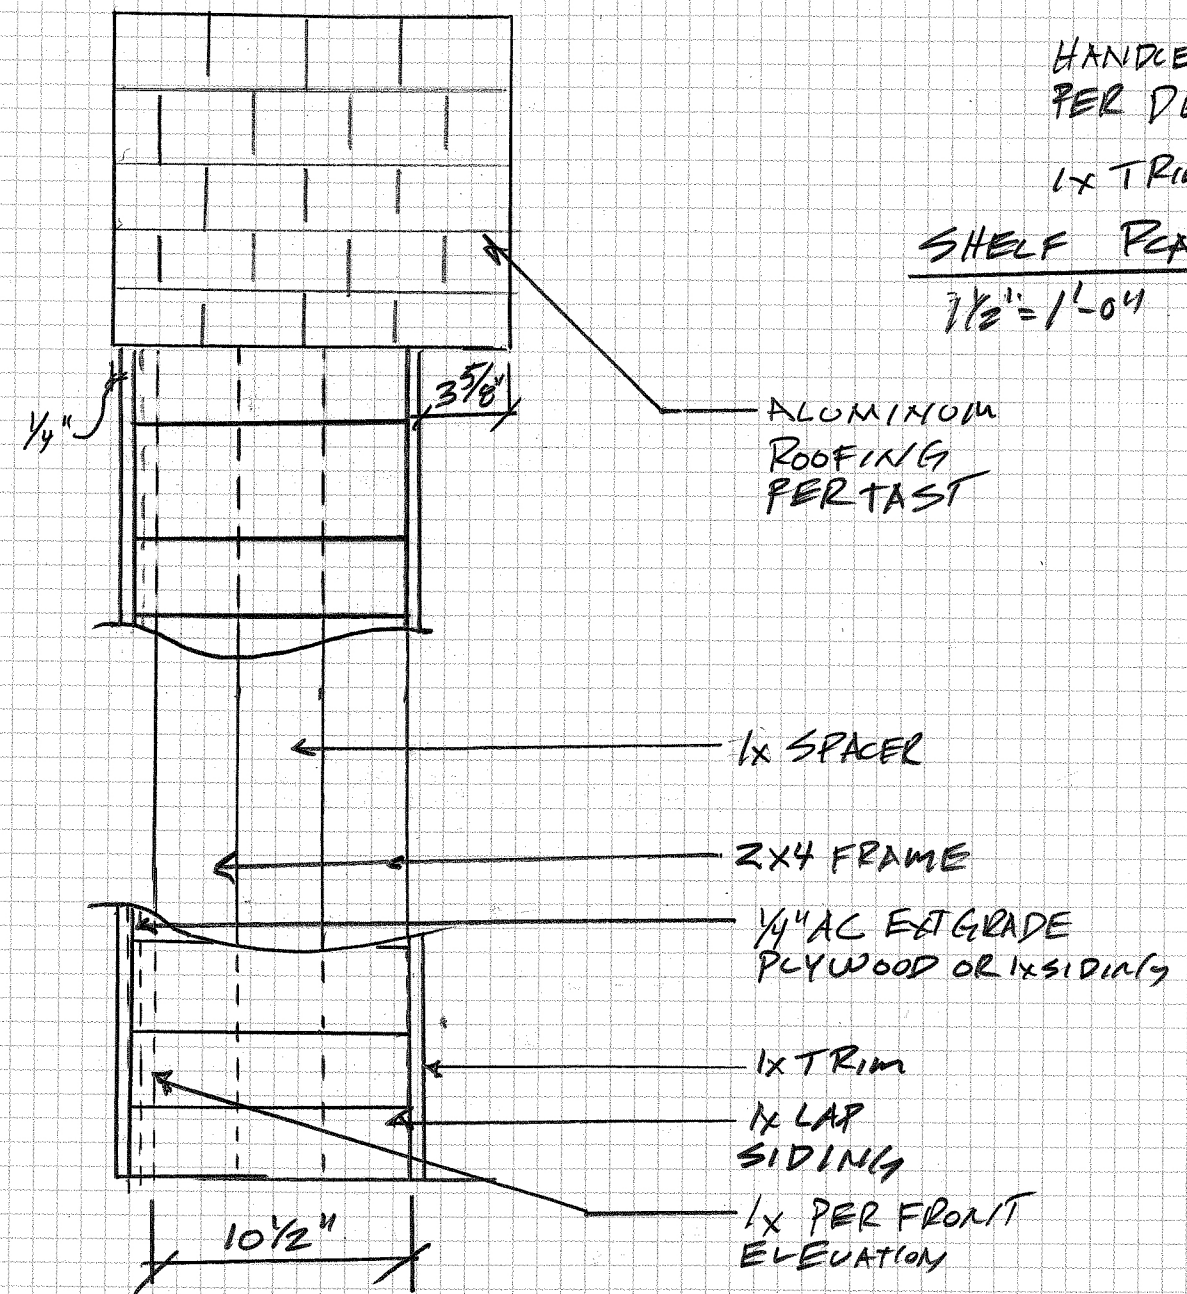 HANDLE
PER D
1x TRIM
SHELF PLA
1 1/2" = 1'-0"
3 5/8"
1/4"
ALUMINUM
ROOFING
PER TAST
1x SPACER
2x4 FRAME
1/4" AC EXT GRADE
PLYWOOD OR 1x SIDING
1x TRIM
1x LAP
SIDING
1x PER FRONT
ELEVATION
10 1/2"